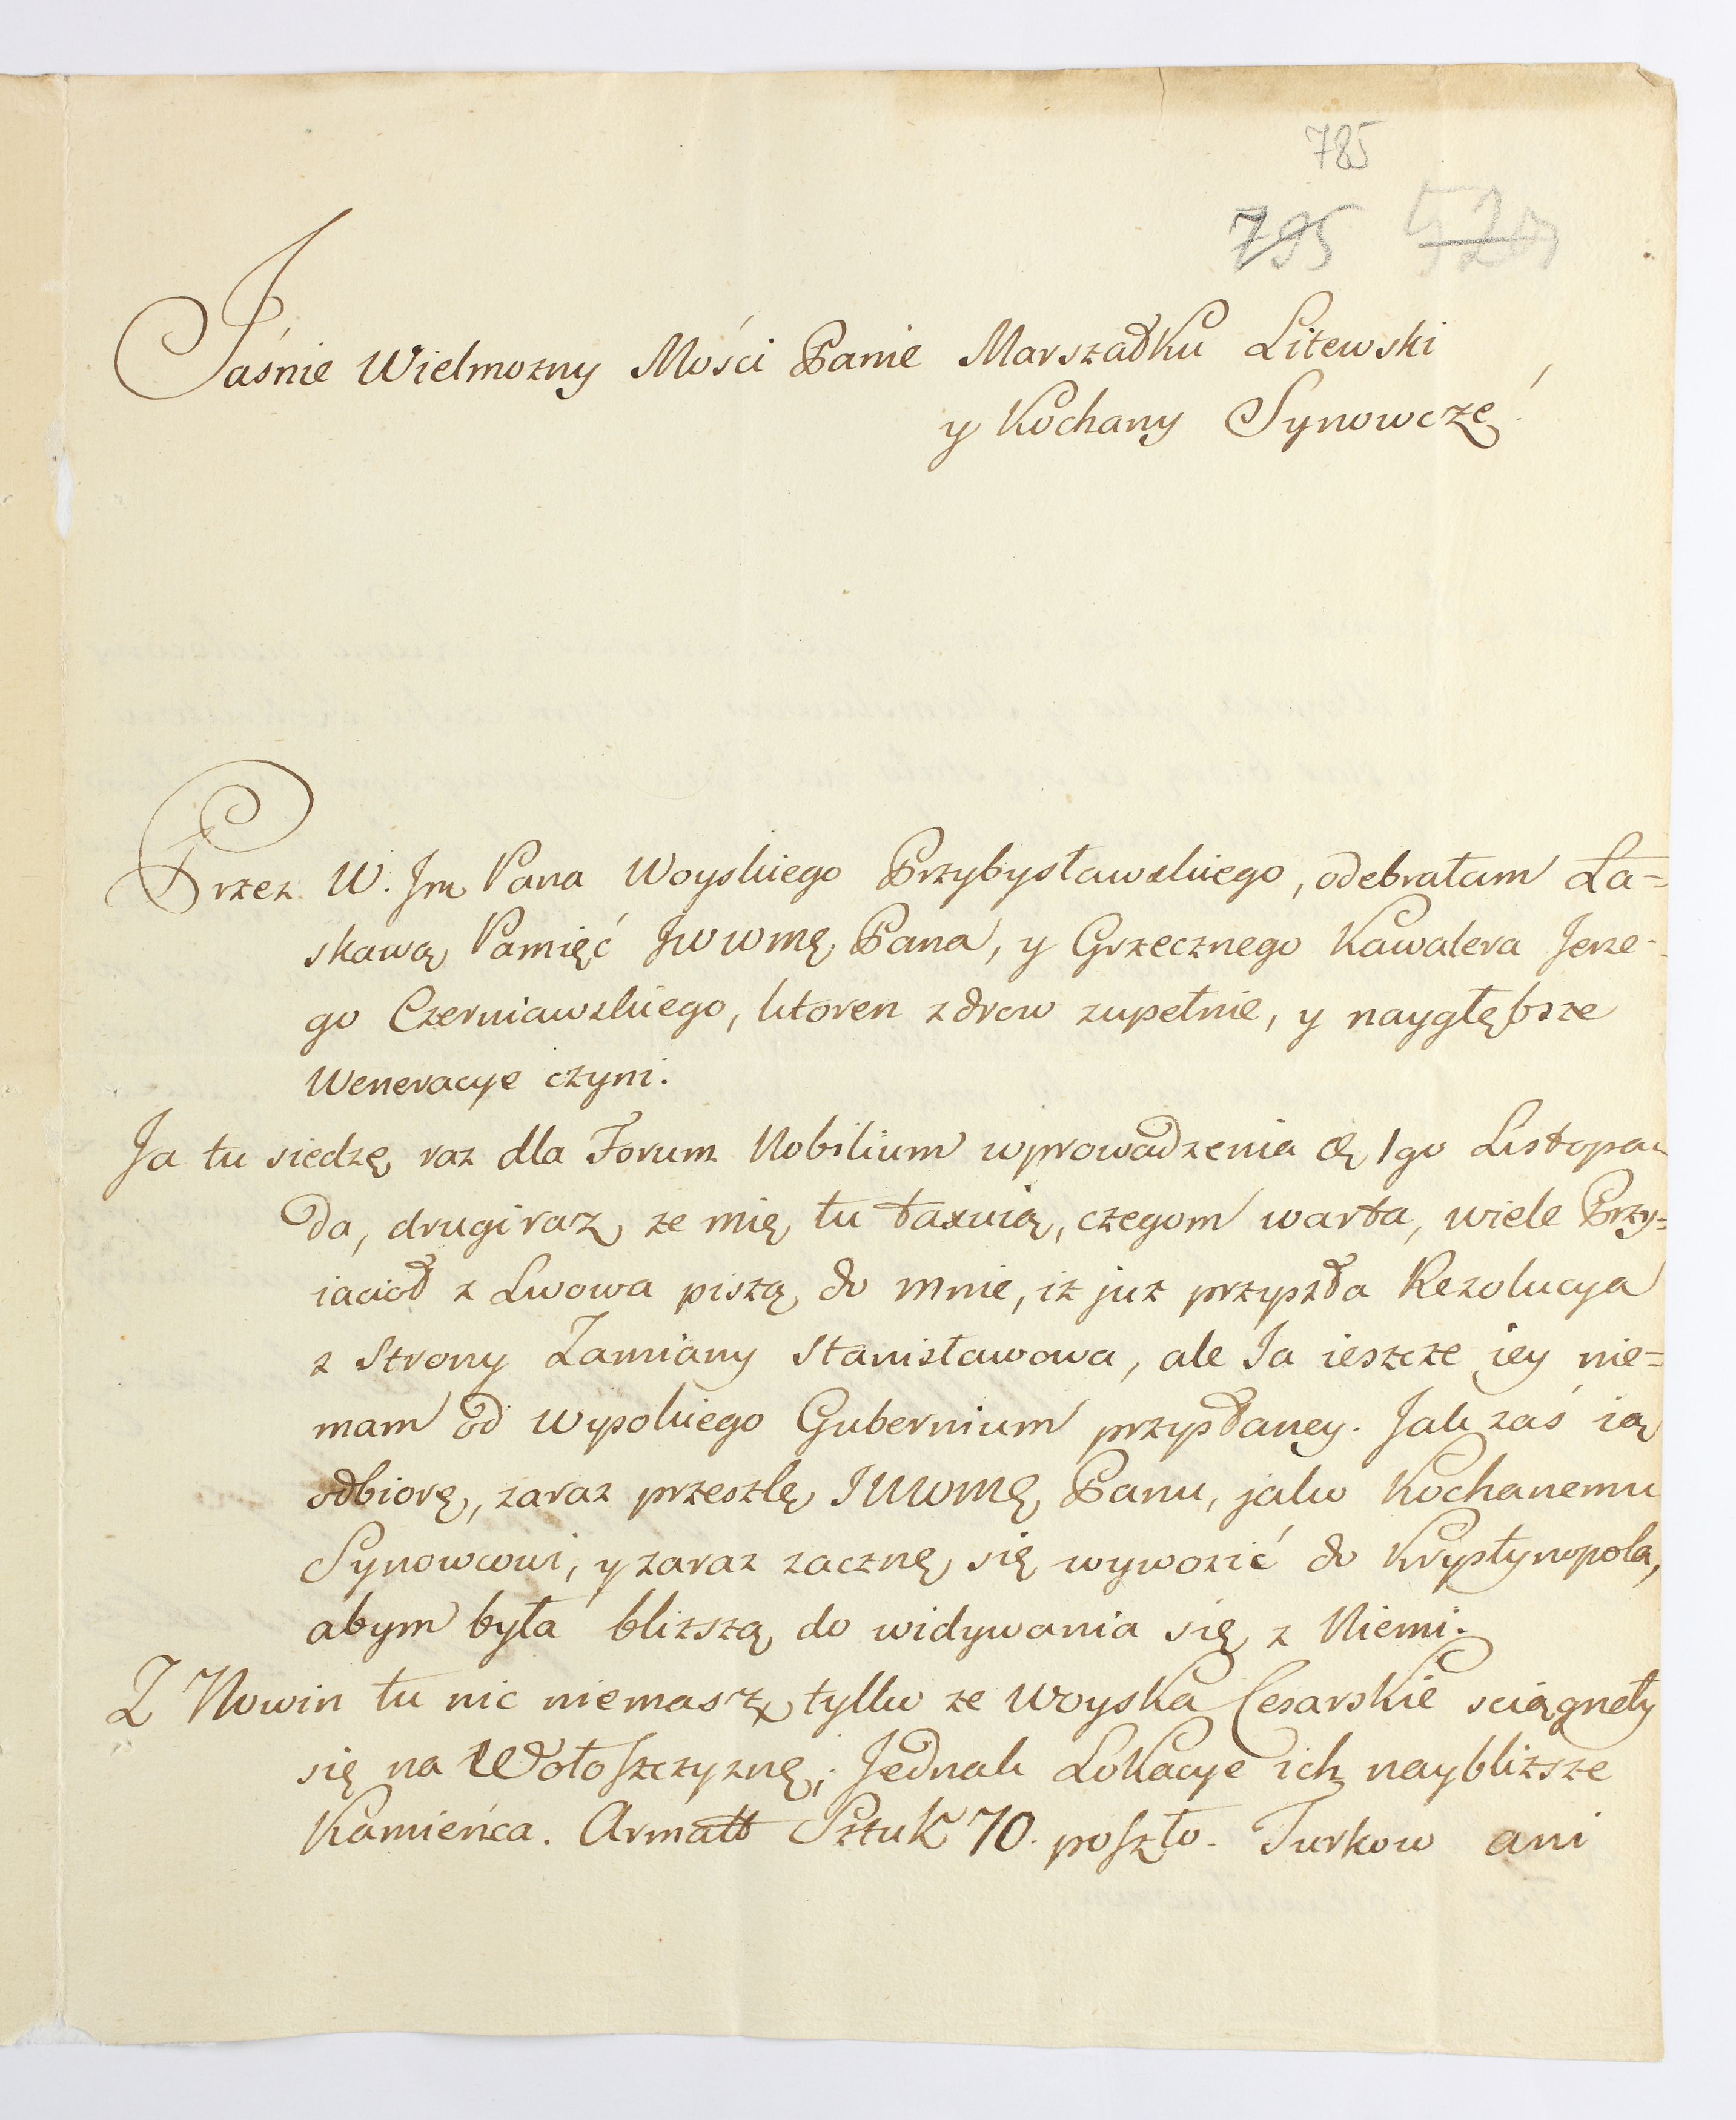 785
795
Jaśnie Wielmozny Mości Panie Marszałku Litewski
y Kochany Synowcze!
Przez W. Jm Pana Woyskiego Przybysławskiego, odebrałam Ła=
skawą Pamięć JWWMę Pana, y Grzecznego Kawalera Jerze-
go Czerniawskiego, ktoren zdrow zupełnie, y naygłębsze
Weneracye czyni.
Ja tu siedzę raz dla Forum Nobilium wprowadzenia 1go Listopa-
da, drugi raz, ze mię tu łaxuią, czegom warta, wiele Przy=
iacioł z Lwowa piszą do mnie, iz juz przyszła Rezolucya
z Strony Zamiany Stanisławowa, ale Ja ieszcze iey nie=
mam od Wysokiego Gubernium przysłaney. Jak zaś ią
odbiorę, zaraz przeszlę JWWMę Panu, jako Kochanemu
Synowcowi, y zaraz zacznę się wywozić do Krystynopola,
abym była blizszą do widywania się z Niemi.
Z Nowin tu nic niemasz, tylko ze Woyska Cesarskie sciągneły
się na Wołoszczyznę, Jednak Lokacye ich nayblizsze
Kamieńca. Armatt Sztuk 70. poszło. Turkow ani